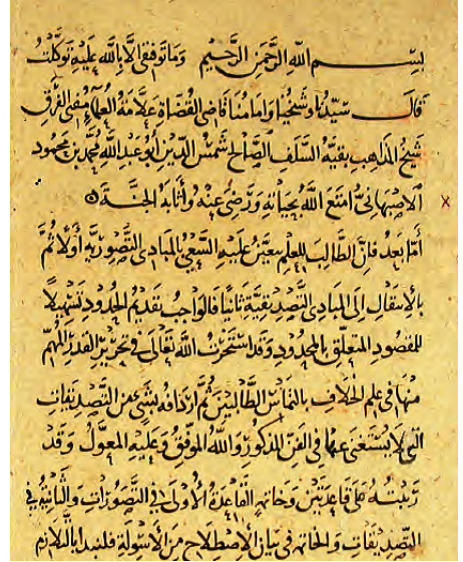 بسم الله الرحمن الرحيم وما توفيقي الا بالله عليه توكلت
قال سيدنا وشيخنا وامامنا قاضي القضاة علامة العلماء مفتي الفرق
شيخ المذاهب بقية السلف الصالح شمس الدين ابو عبد الله محمد بن محمود
الاصبهاني امتع الله بحياته ورضي عنه واثابه الجنة
أما بعد فان الطالب للعلم يتعين عليه السعي بالمبادي التصورية أولا ثم
بالانتقال إلى المبادي التصديقية ثانيا فالواجب تقديم الحدود تسهيلا
للمقصود المتعلق بالمحدود وقد استخرت الله تعالى في تحرير القدر المهم
منها في علم الخلاف بالتماس الطالبين ثم اردافه بشيء من التصديقات
التي لا يستغنى عنها في الفن المذكور والله الموفق وعليه المعول وقد
رتبته على قاعدتين وخاتمه القاعدة الأولى في التصورات والثانية في
التصديقات والخاتمه في بيان الاصطلاح من الاسولة فلنبدا بالتلازم